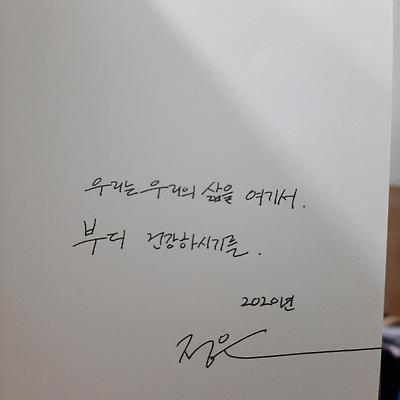 우리는 우리의 삶을 여기서.
부디 건강하시기를.
2020년
정은